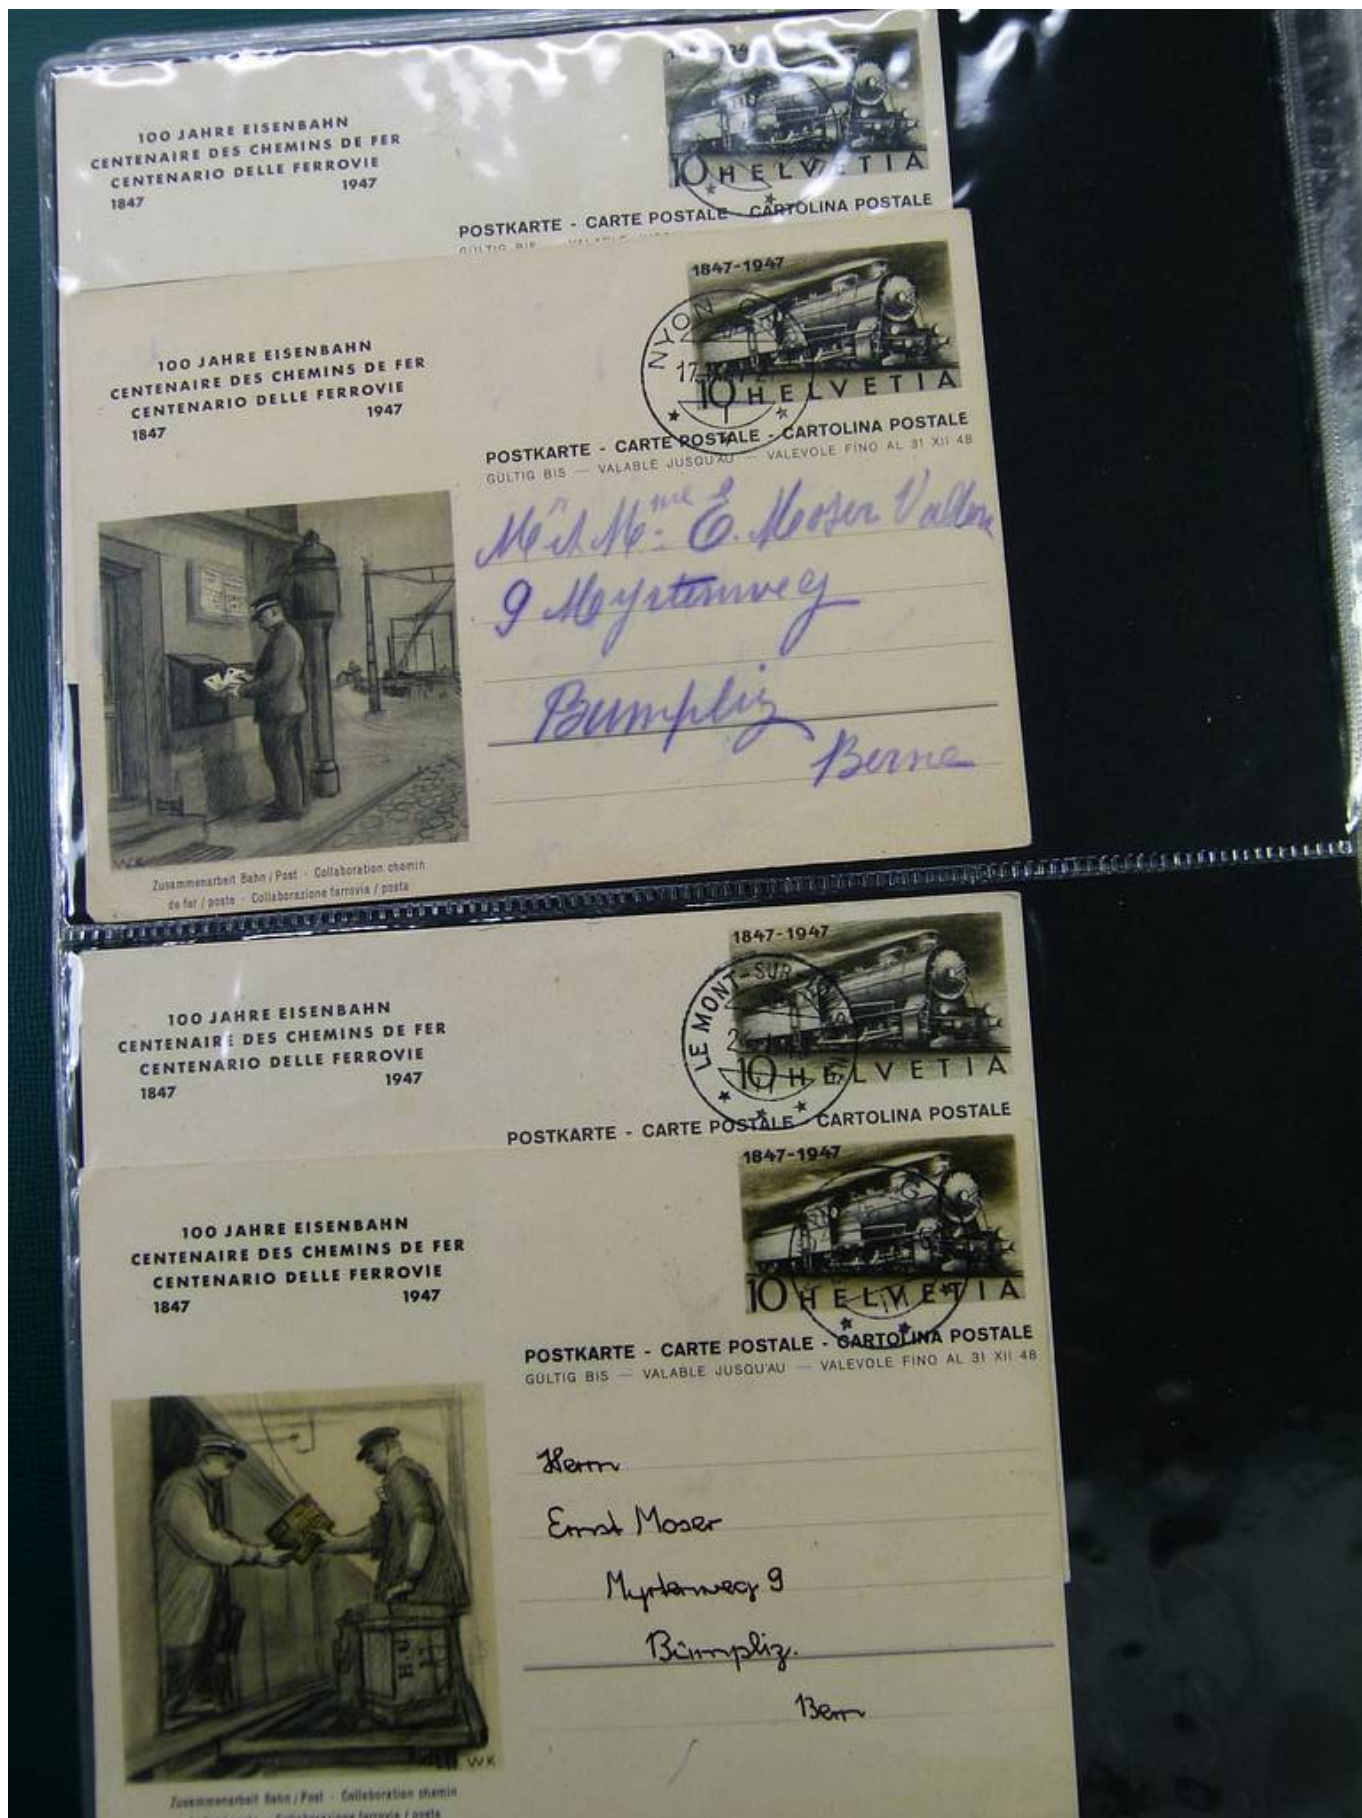 100 JAHRE EISENBAHN
CENTENAIRE DES CHEMINS DE FER
CENTENARIO DELLE FERROVIE
1847 1947
10 HELVETIA
POSTKARTE - CARTE POSTALE - CARTOLINA POSTALE
GÜLTIG BIS
1847-1947
NYON
17
10 HELVETIA
100 JAHRE EISENBAHN
CENTENAIRE DES CHEMINS DE FER
CENTENARIO DELLE FERROVIE
1847 1947
POSTKARTE - CARTE POSTALE - CARTOLINA POSTALE
GÜLTIG BIS — VALABLE JUSQU'AU — VALEVOLE FINO AL 31 XII 48
Mr et Mme E. Moser
9 Myrtenweg
Bumpliz
Berne
WK
Zusammenarbeit Bahn / Post · Collaboration chemin
de fer / poste · Collaborazione ferrovia / posta
1847-1947
LE MONT-SUR-
10 HELVETIA
100 JAHRE EISENBAHN
CENTENAIRE DES CHEMINS DE FER
CENTENARIO DELLE FERROVIE
1847 1947
POSTKARTE - CARTE POSTALE - CARTOLINA POSTALE
1847-1947
10 HELVETIA
100 JAHRE EISENBAHN
CENTENAIRE DES CHEMINS DE FER
CENTENARIO DELLE FERROVIE
1847 1947
POSTKARTE - CARTE POSTALE - CARTOLINA POSTALE
GÜLTIG BIS — VALABLE JUSQU'AU — VALEVOLE FINO AL 31 XII 48
Herrn
Ernst Moser
Myrtenweg 9
Bümpliz.
Bern
WK
Zusammenarbeit Bahn / Post · Collaboration chemin
Collaborazione ferrovia / posta